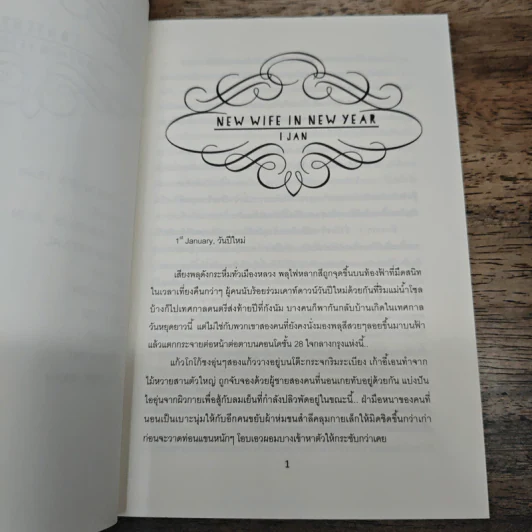 NEW WIFE IN NEW YEAR
1 JAN
1st January, วันปีใหม่
เสียงพลุดังกระหึ่มทั่วเมืองหลวง พลุไฟหลากสีถูกจุดขึ้นบนท้องฟ้าที่มืดสนิท
ในเวลาเที่ยงคืนกว่าๆ ผู้คนนับร้อยร่วมเคาท์ดาวน์วันปีใหม่ด้วยกันที่ริมแม่น้ำโซล
บ้างก็ไปเทศกาลดนตรีส่งท้ายปีที่กังนัม บางคนก็พากันกลับบ้านเกิดในเทศกาล
วันหยุดยาวนี้ แต่ไม่ใช่กับพวกเขาสองคนที่ยังคงนั่งมองพลุสีสวยๆลอยขึ้นมาบนฟ้า
แล้วแตกกระจายต่อหน้าต่อตาบนคอนโดชั้น 28 ใจกลางกรุงแห่งนี้..
แก้วโกโก้ชงอุ่นๆสองแก้ววางอยู่บนโต๊ะกระจกริมระเบียง เก้าอี้เอนทำจาก
ไม้หวายสานตัวใหญ่ ถูกจับจองด้วยผู้ชายสองคนที่นอนเกยทับอยู่ด้วยกัน แบ่งปัน
ไออุ่นจากผิวกายเพื่อสู้กับลมเย็นที่กำลังปลิวพัดอยู่ในขณะนี้.. ฝ่ามือหนาของคนที่
นอนเป็นเบาะนุ่มให้กับอีกคนขยับผ้าห่มขนสำลีคลุมกายเล็กให้มิดชิดขึ้นกว่าเก่า
ก่อนจะวาดท่อนแขนหนักๆ โอบเอวผอมบางเข้าหาตัวให้กระชับกว่าเคย
1